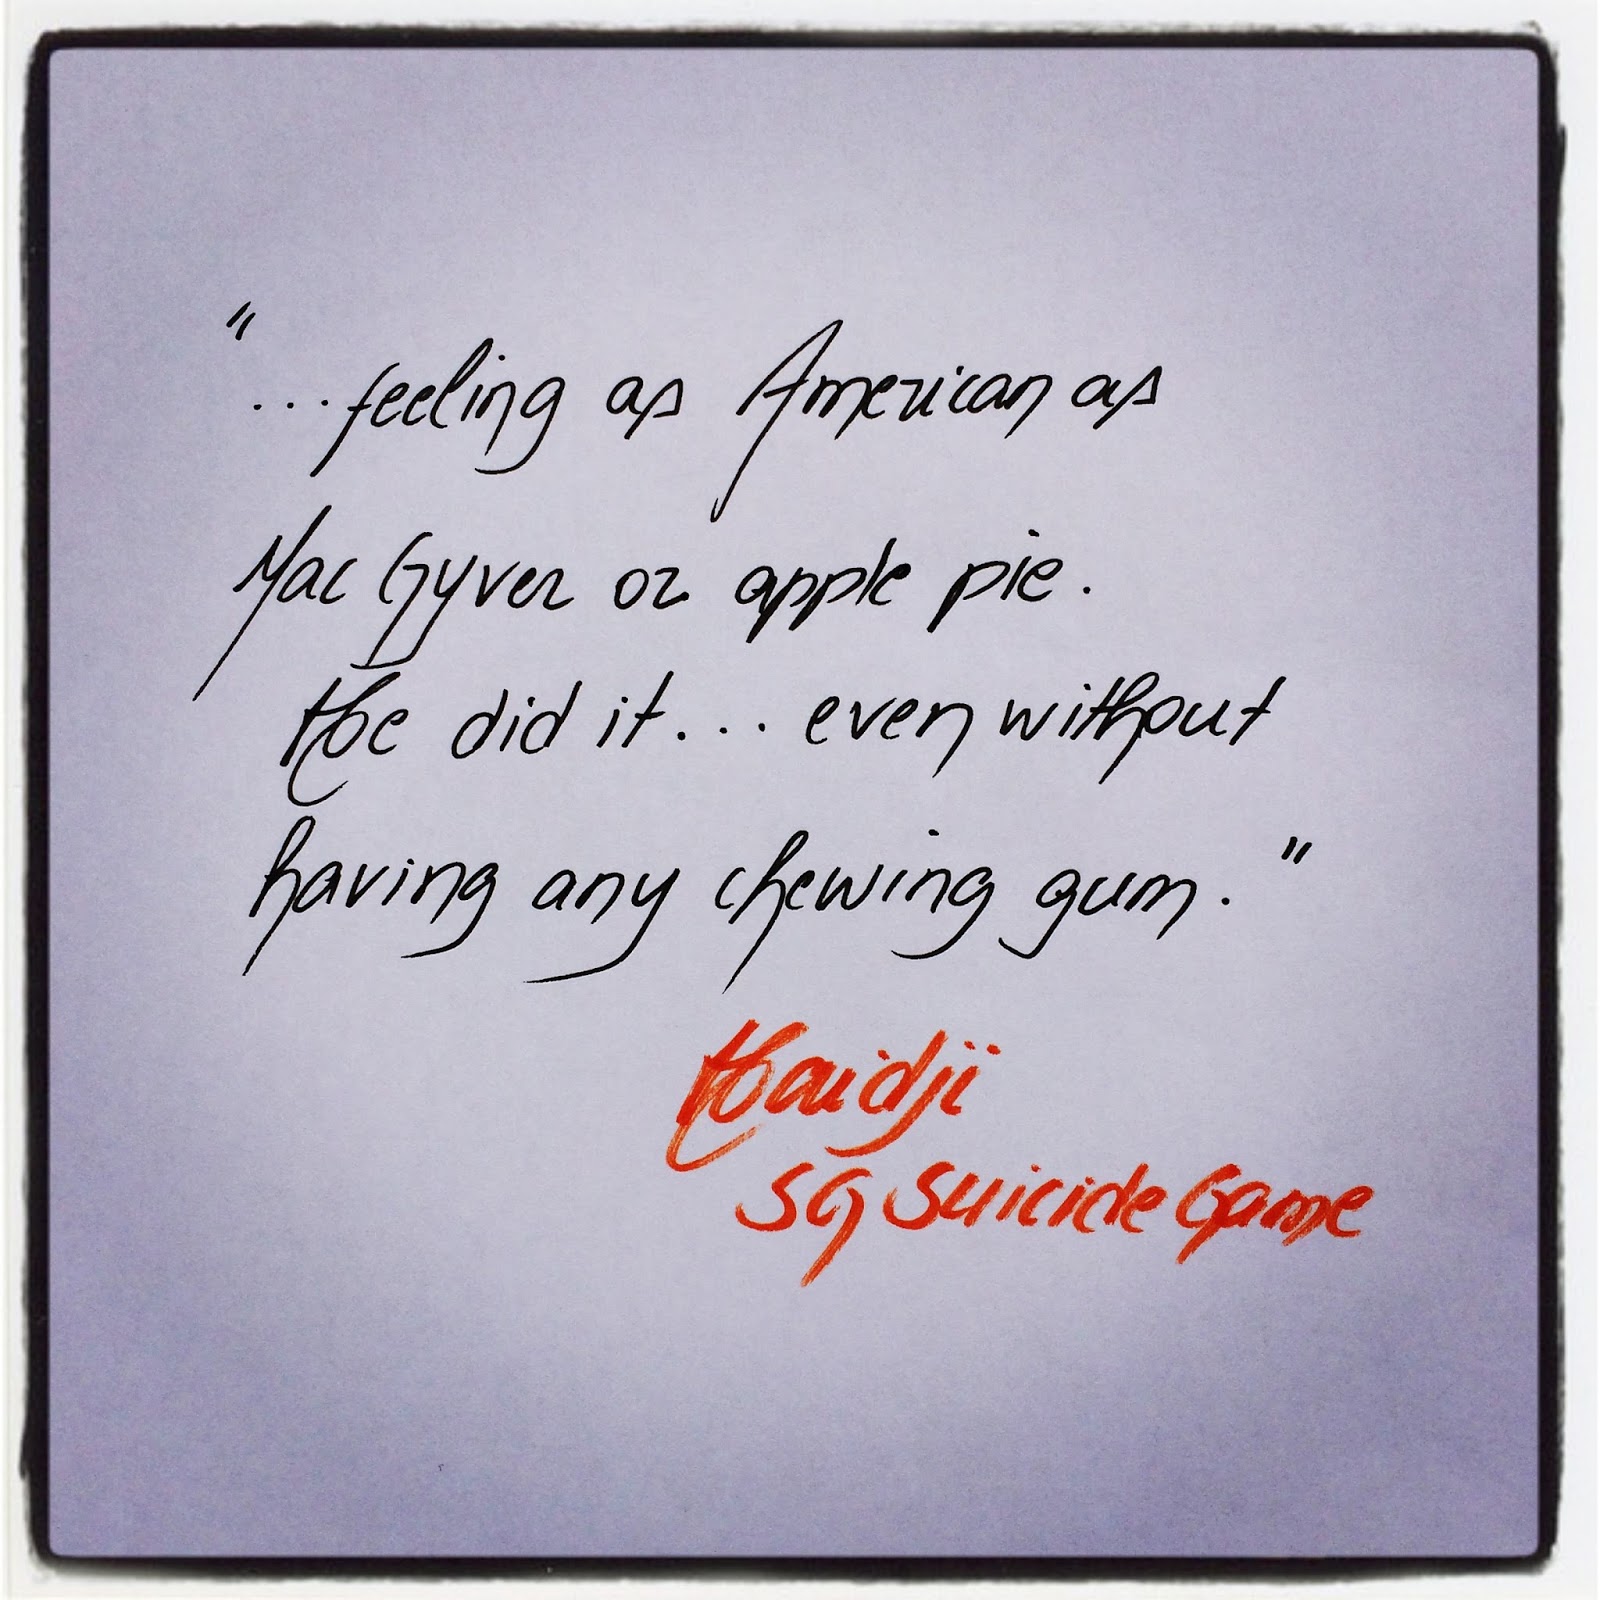 "...feeling as American as
Mac Gyver or apple pie.
He did it... even without
having any chewing gum."
Haidji
SG Suicide Game